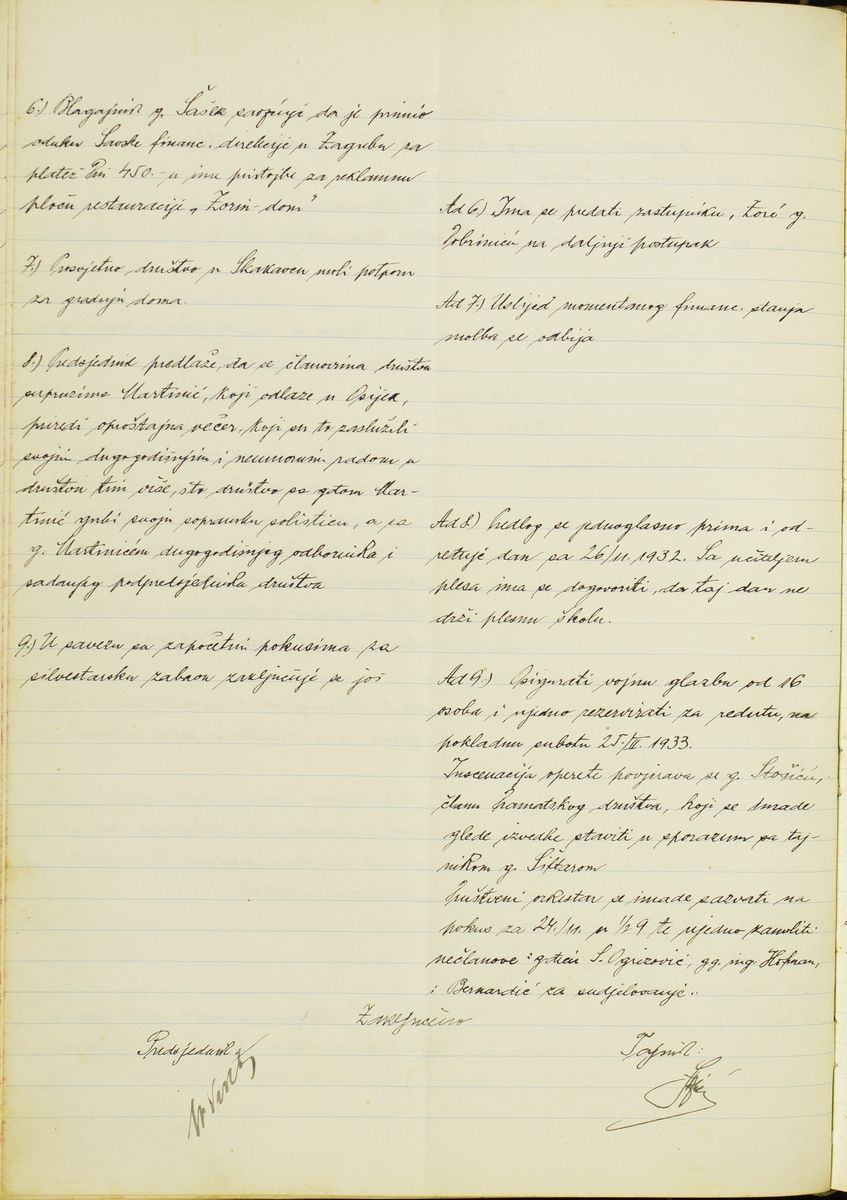 6.) Blagajnik g. Šašek saopćuje da je primio
odluku Savske financ. direkcije u Zagrebu za
platež Din 450.- u ime pristojbe za reklamnu
ploču restauracije „Zorin-dom"
Ad 6.) Ima se predati zastupniku, Zoré g.
na daljnji postupak
7.) Prosvjetno društvo u Skakavcu moli potporu
za gradnju doma.
Ad 7.) Uslijed momentanog financ. stanja
molba se odbija
8.) Predsjednik predlaže, da se članovima društva
supruzima Martinić, koji odlaze u Osijek,
priredi oproštajna večer, koji su to zaslužili
svojim dugogodišnjim i neumornim radom u
društvu tim više, što društvo sa gđom Mar-
tinić gubi svoju sopransku solisticu, a sa
g. Martinićem dugogodišnjeg odbornika i
sadanjeg podpredsjednika društva
Ad 8.) Predlog se jednoglasno prima i od-
ređuje dan sa 26/11. 1932. Sa učiteljem
plesa ima se dogovoriti, da taj dan ne
drži plesnu školu.
9.) U savezu sa započetim pokusima za
silvestarsku zabavu zaključuje se još
Ad 9.) Osigurati vojnu glazbu od 16
osoba i ujedno rezervirati za redutu, na
pokladnu subotu 25./II. 1933.
Inscenacija operete povjerava se g. Stošiću,
članu Hamatskog društva, koji se imade
glede izvedbe staviti u sporazum sa taj-
nikom g. Šiftarom
Društveni orkestar se imade sazvati na
pokus za 24./11. u 1/2 9 te ujedno zamoliti
nečlanove: gđicu S. Ogrizović, gg. ing. Hofman,
i Bernardić za sudjelovanje.
Zaključeno
Predsjednik
Tajnik: